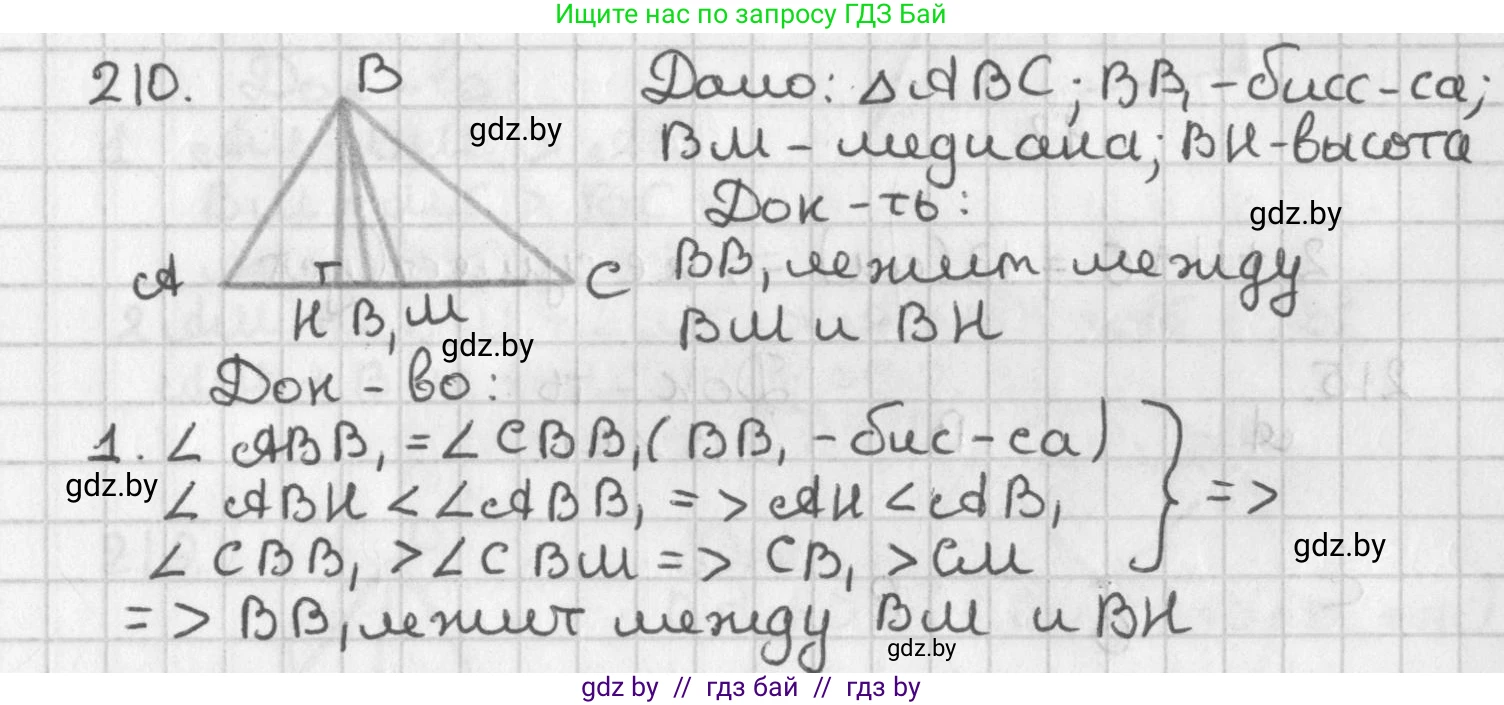 Ищите нас по запросу ГДЗ Бай
210.
B
A
C
H B₁ M
Дано: △ABC; BB₁ - бисс-са;
BM - медиана; BH - высота
Док-ть:
BB₁ лежит между
BM и BH
gdz.by
gdz.by
gdz.by
Док-во:
1. ∠ABB₁ = ∠CBB₁ (BB₁ - бис-са)
gdz.by
∠ABH < ∠ABB₁ => AH < AB₁
} =>
∠CBB₁ > ∠CBM => CB₁ > CM
gdz.by
=> BB₁ лежит между BM и BH
gdz.by
gdz by // гдз бай // гдз by